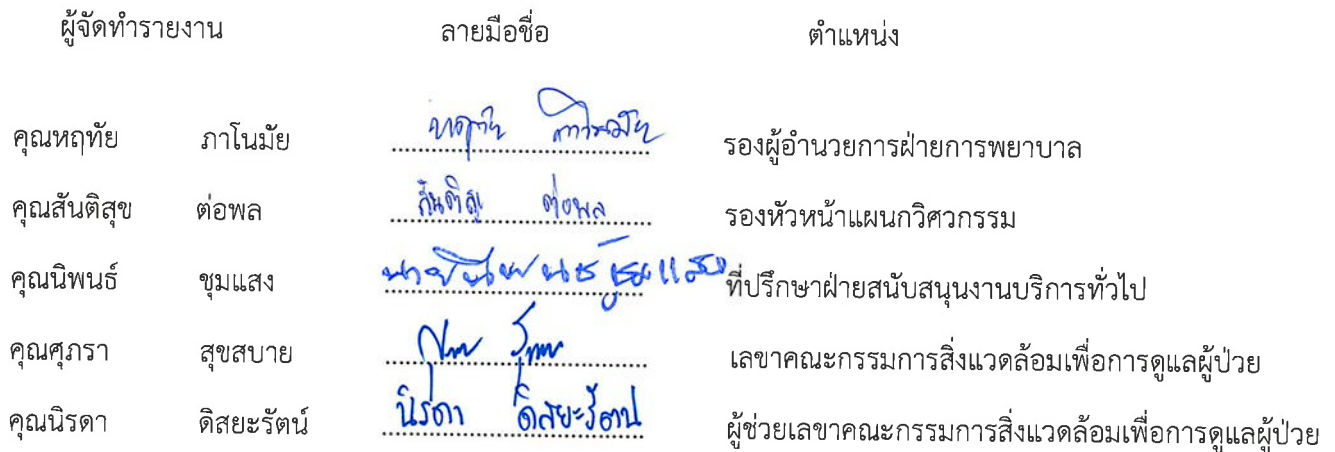 ผู้จัดทำรายงาน ลายมือชื่อ ตำแหน่ง
คุณหฤทัย ภาโนมัย หฤทัย ภาโนมัย รองผู้อำนวยการฝ่ายการพยาบาล
คุณสันติสุข ต่อพล สันติสุข ต่อพล รองหัวหน้าแผนกวิศวกรรม
คุณนิพนธ์ ชุมแสง นายนิพนธ์ ชุมแสง ที่ปรึกษาฝ่ายสนับสนุนงานบริการทั่วไป
คุณศุภรา สุขสบาย เลขาคณะกรรมการสิ่งแวดล้อมเพื่อการดูแลผู้ป่วย
คุณนิรดา ดิสยะรัตน์ นิรดา ดิสยะรัตน์ ผู้ช่วยเลขาคณะกรรมการสิ่งแวดล้อมเพื่อการดูแลผู้ป่วย